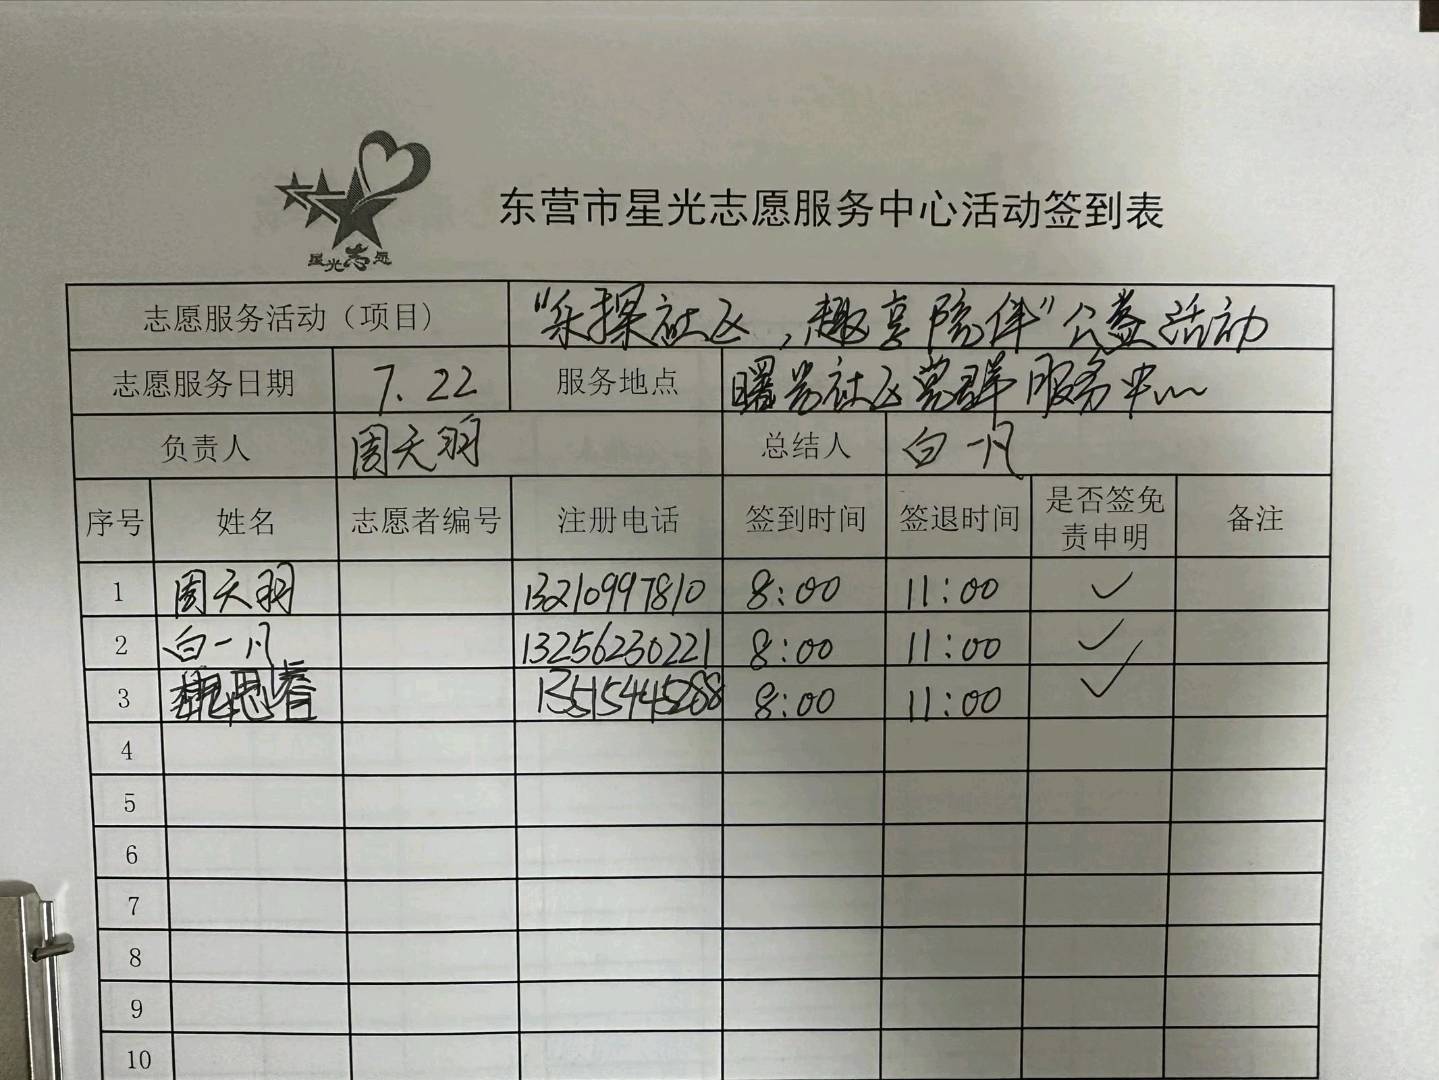 星光志愿
东营市星光志愿服务中心活动签到表
志愿服务活动（项目） “乐探社区，趣享陪伴”公益活动
志愿服务日期 7.22 服务地点 曙光社区党群服务中心
负责人 周天羽 总结人 白一凡
序号 姓名 志愿者编号 注册电话 签到时间 签退时间 是否签免责申明 备注
1 周天羽 13210997810 8:00 11:00 ✓
2 白一凡 13256230221 8:00 11:00 ✓
3 8:00 11:00 ✓
4
5
6
7
8
9
10